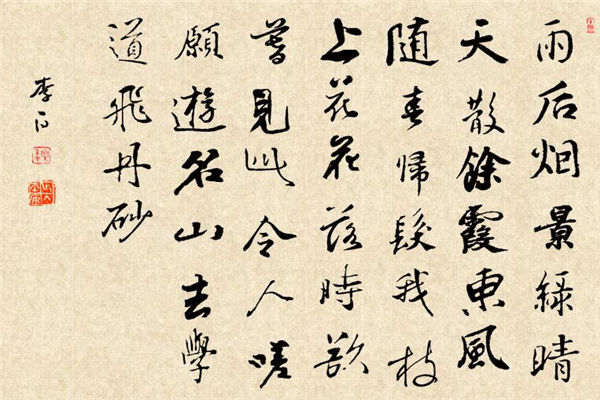 雨后烟景綠晴
天散餘霞東風
随春歸發我枝
上花花落時欲
暮見此令人嗟
願遊名山去學
道飛丹砂
李白